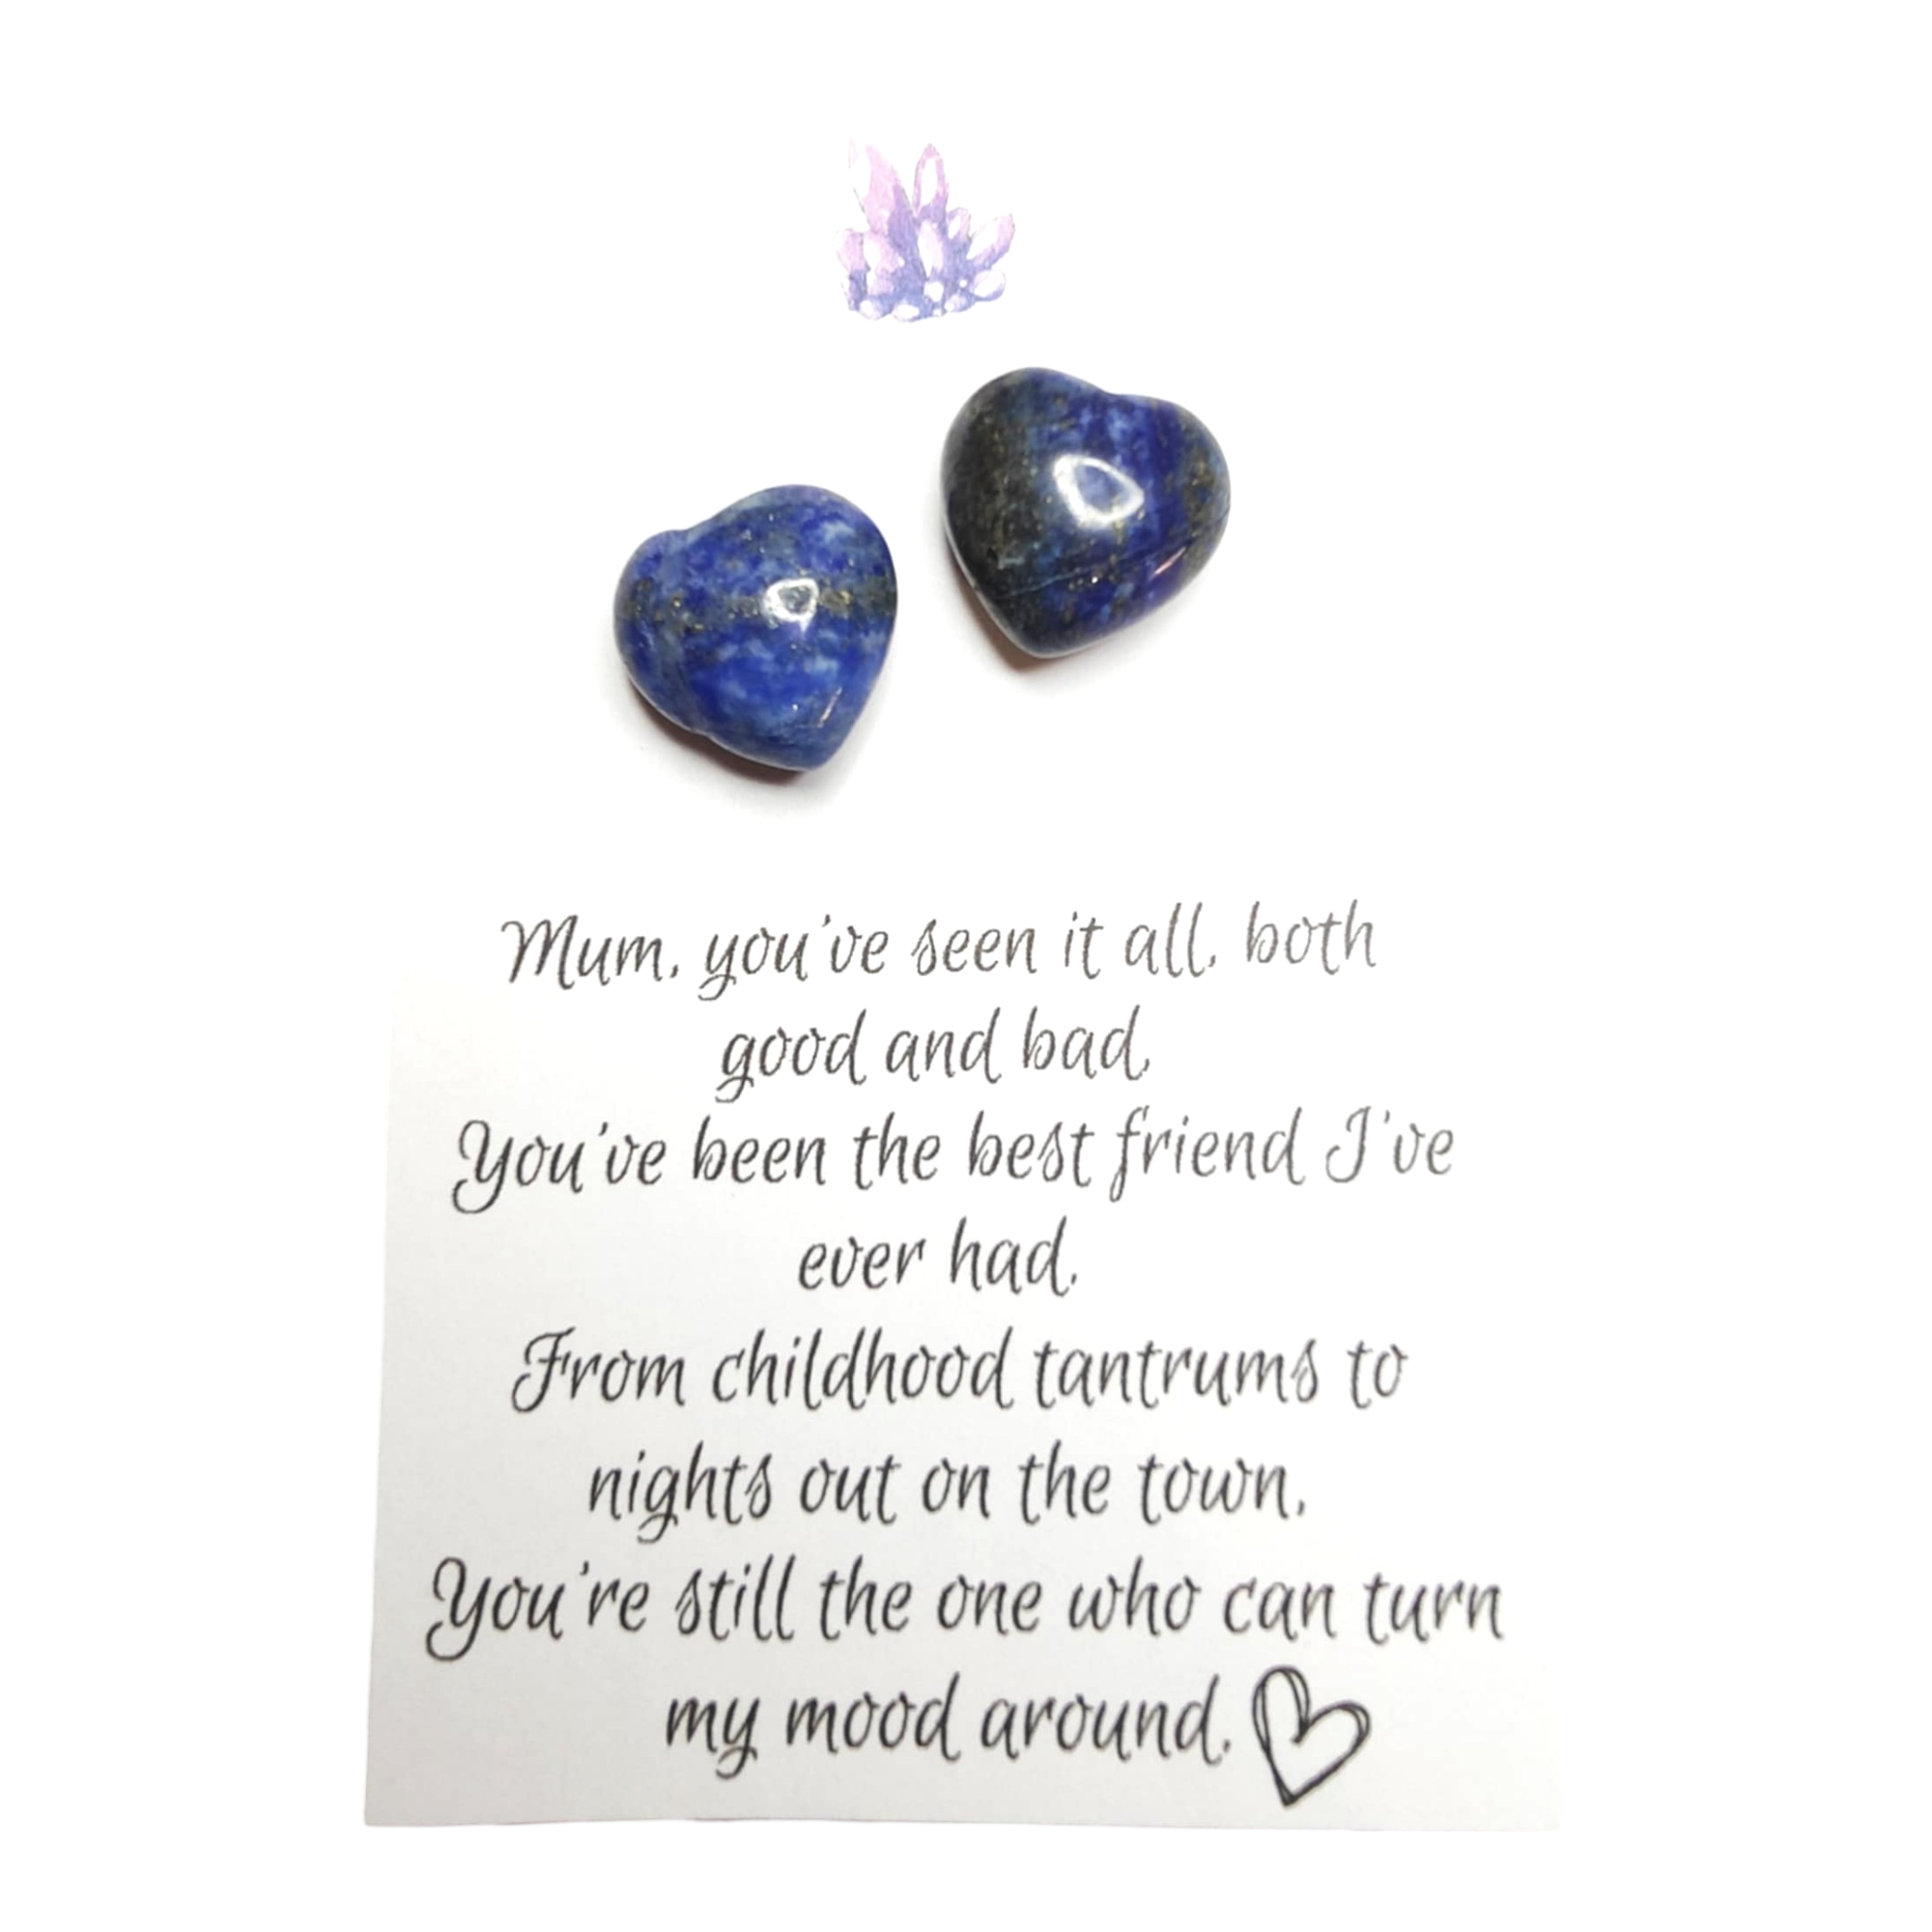 Mum, you've seen it all, both
good and bad,
You've been the best friend I've
ever had.
From childhood tantrums to
nights out on the town,
You're still the one who can turn
my mood around.